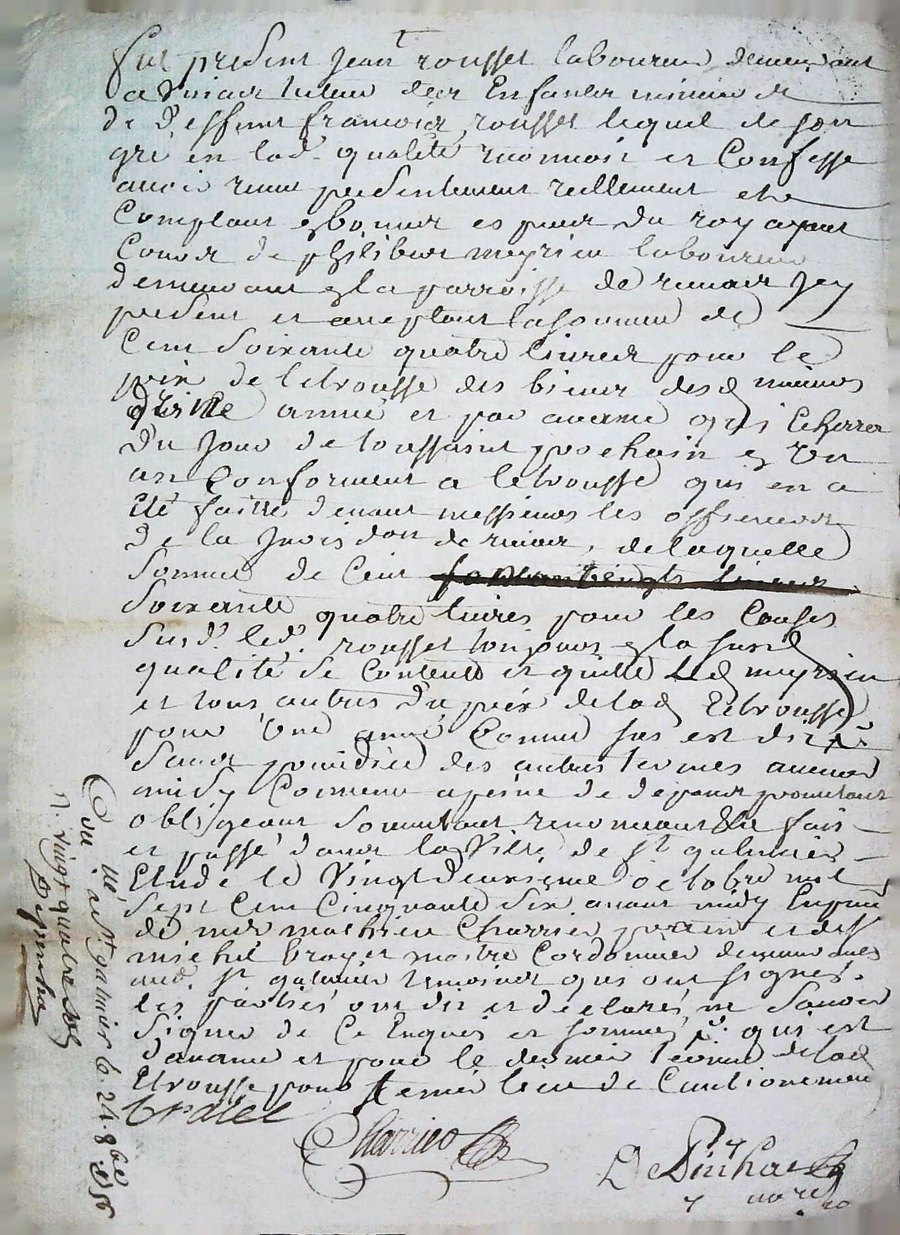 fut present Jean rousset laboureur demeurant
a Viricel tuteur des Enfants mineurs
de deffunt francois rousset lequel de son
gré en lad. qualité reconnoit et Confesse
avoir receu presentement reellement et
Comptant en bonnes especes du roy ayant
Cours de philibert meyrieu laboureur
demeurant en la parroisse de jcy
present et acceptant la somme de
Cent Soixante quatre livres pour le
prix de letrousse des biens desd mineurs
année et par avance qui Echerra
Du Jour de toussaint prochain en Un
an Conformement a letrousse qui en a
été faitte devant messieurs les officiers
de la Jurisdon de , de laquelle
Somme de Cent
Soixante quatre livres pour les Causes
Susd. led. rousset toujours en la susd
qualité Se Contente et quitte Led meyrieu
et tous autres Du prix de lad Etrousse
pour Une année Comme sus est dit
Sans prejudice des autres termes avenir
Comme a peine de depans promettant
obligeant Soumettant renonceant &a fait
et passé dans la Ville de St galmier
Etude le Vingt deuxieme octobre mil
Sept Cent Cinquante Six avant midy En presence
de mre mathieu Charrier praticien et de Sr
michel maitre Cordonnier demeurants
aud. St galmier temoins qui ont Signés.
les parties ont dit et declarés ne Scavoir
Signer de Ce Enquis et Sommés, qui est
d'avance et pour le dernier terme de lad
Etrousse pour tenir lieu de Cautionnement
Charrier
Con llé a St galmier le 24. 8bre 1756
R. vingt quatre sols